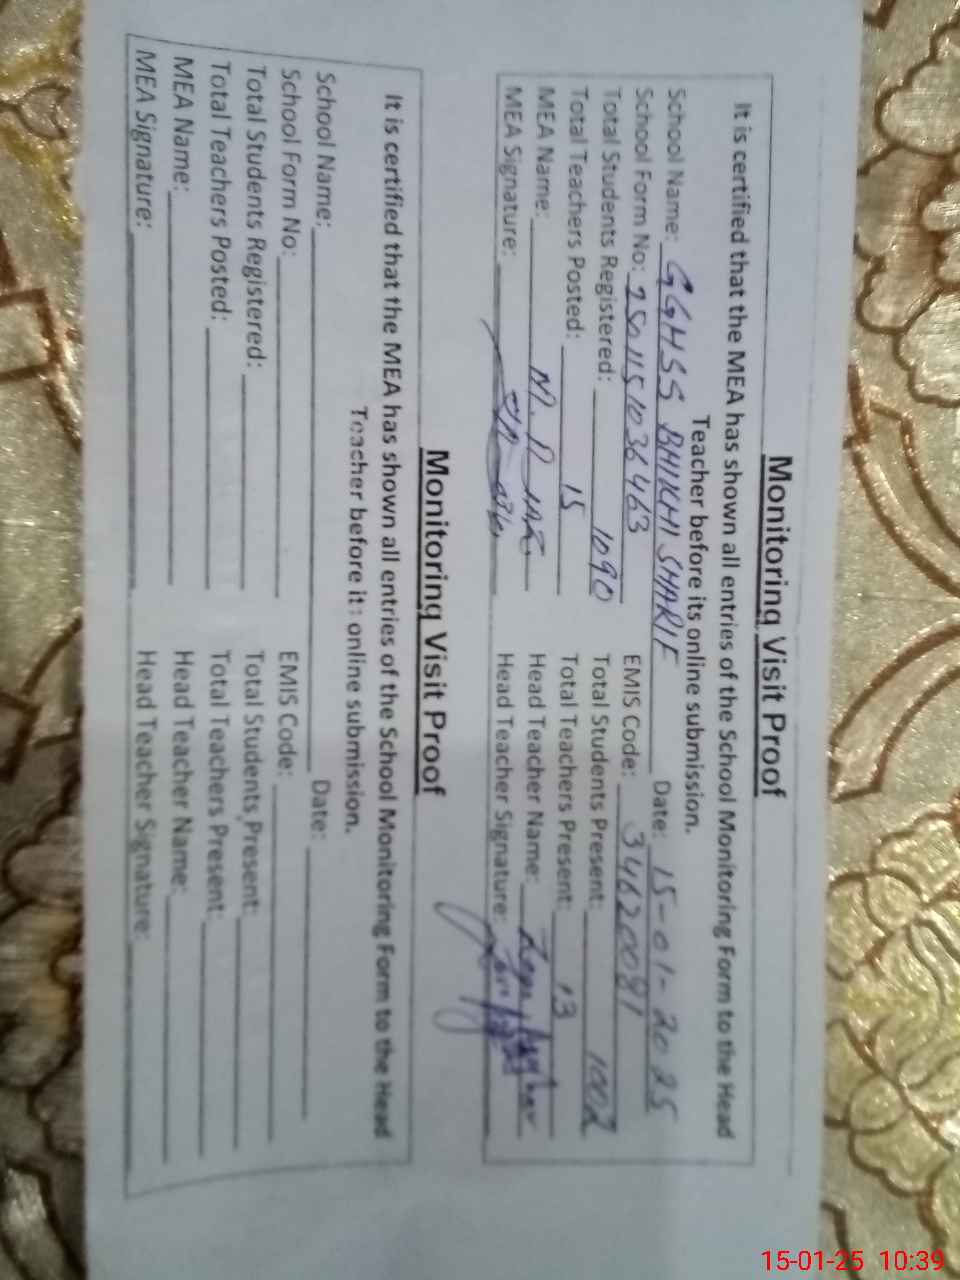 Monitoring Visit Proof
It is certified that the MEA has shown all entries of the School Monitoring Form to the Head
Teacher before its online submission.
School Name: GGHSS BHIKHI SHARIF Date: 15-01-2025
School Form No: 2501151036463 EMIS Code: 34620081
Total Students Registered: 1090 Total Students Present: 1002
Total Teachers Posted: 15 Total Teachers Present: 13
MEA Name: Head Teacher Name:
MEA Signature: Head Teacher Signature:
Monitoring Visit Proof
It is certified that the MEA has shown all entries of the School Monitoring Form to the Head
Teacher before its online submission.
School Name: Date:
School Form No: EMIS Code:
Total Students Registered: Total Students Present:
Total Teachers Posted: Total Teachers Present:
MEA Name: Head Teacher Name:
MEA Signature: Head Teacher Signature:
15-01-25 10:39